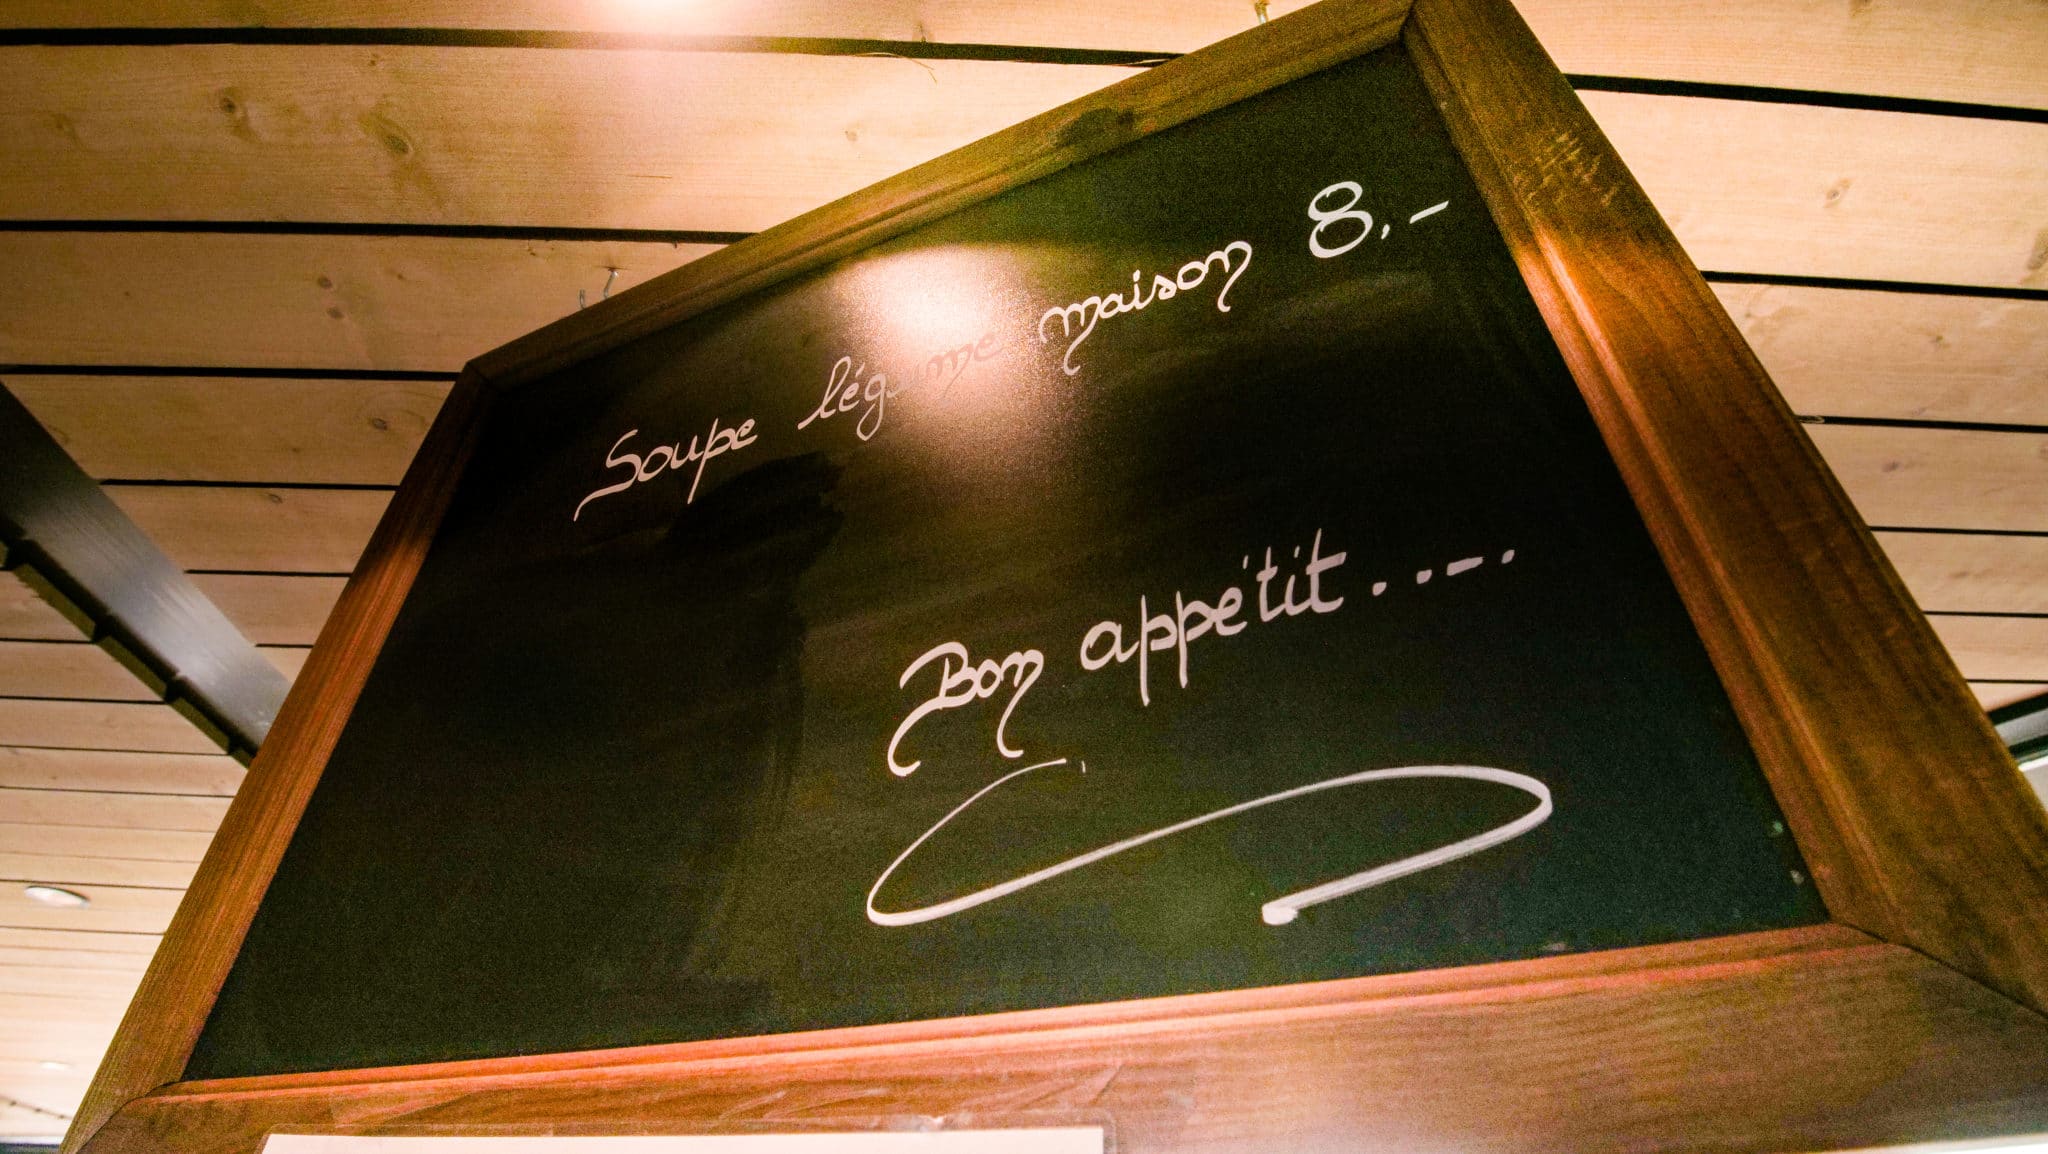 Soupe légume maison 8.-
Bon appétit....